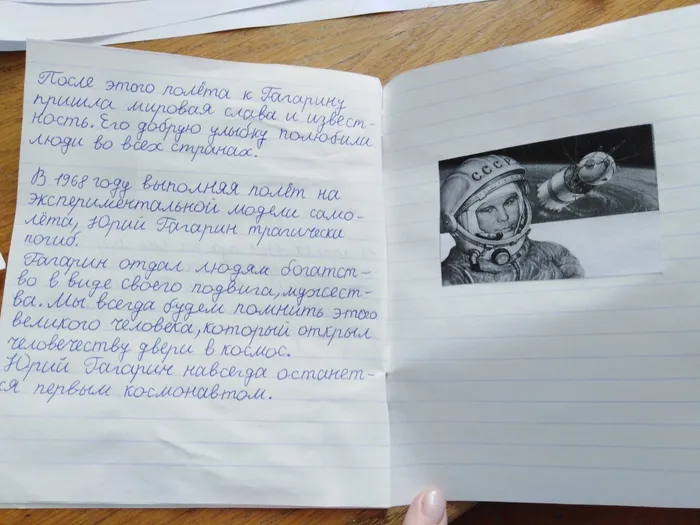 После этого полёта к Гагарину
пришла мировая слава и извест-
ность. Его добрую улыбку полюбили
люди во всех странах.
В 1968 году выполняя полёт на
экспериментальной модели само-
лёта, Юрий Гагарин трагически
погиб.
Гагарин отдал людям богатст-
во в виде своего подвига, мужест-
ва. Мы всегда будем помнить этого
великого человека, который открыл
человечеству двери в космос.
Юрий Гагарин навсегда останет-
ся первым космонавтом.
СССР